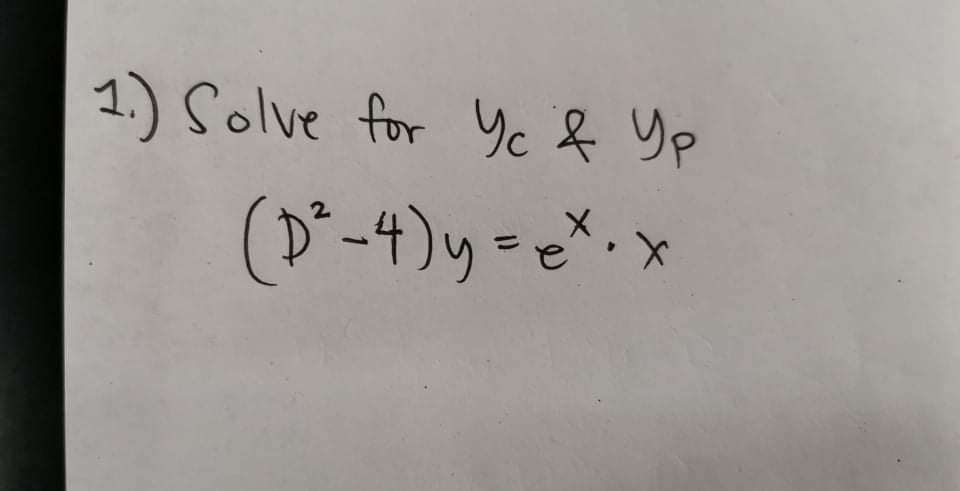 1.) Solve for yc & yp
(D²-4)y = eˣ . x